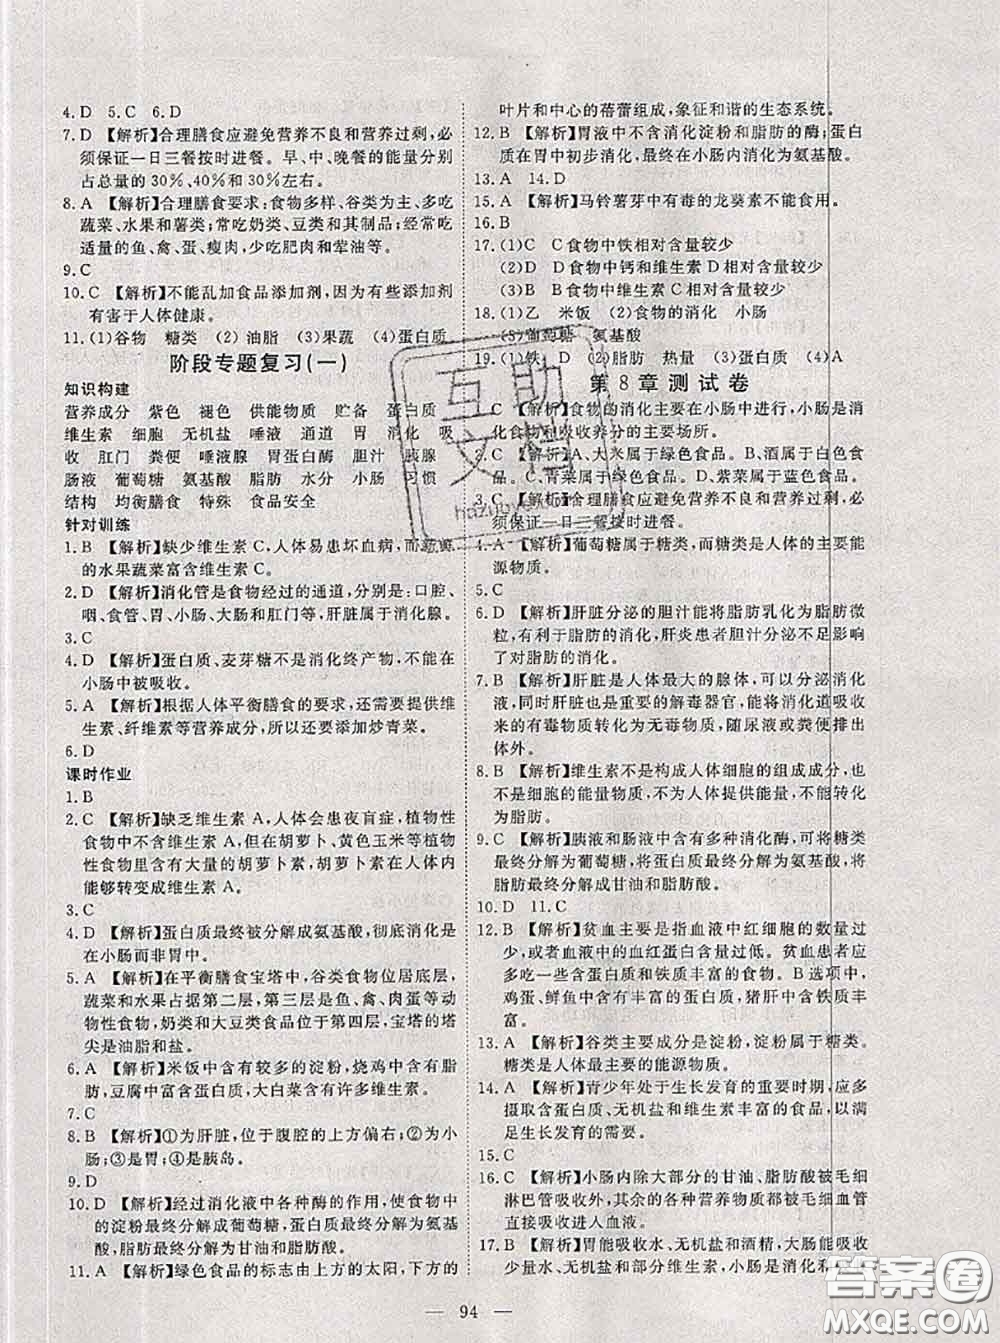 4. D　5. C　6. D
7. D　【解析】合理膳食应避免营养不良和营养过剩,必
须保证一日三餐按时进餐。早、中、晚餐的能量分别
占总量的30%、40%和30%左右。
8. A　【解析】合理膳食要求:食物多样、谷类为主、多吃
蔬菜、水果和薯类;常吃奶类、豆类和其制品;经常吃
适量的鱼、禽、蛋、瘦肉,少吃肥肉和荤油等。
9. C
10. C　【解析】不能乱加食品添加剂,因为有些添加剂
有害于人体健康。
11. (1)谷物　糖类　(2)油脂　(3)果蔬　(4)蛋白质
阶段专题复习(一)
知识构建
营养成分　紫色　褪色　供能物质　贮备　蛋白质
维生素　细胞　无机盐　唾液　通道　胃　消化　吸
收　肛门　粪便　唾液腺　胃蛋白酶　胆汁　胰腺
肠液　葡萄糖　氨基酸　脂肪　水分　小肠　习惯
结构　均衡膳食　特殊　食品安全
针对训练
1. B　【解析】缺少维生素C,人体易患坏血病,而新鲜
的水果蔬菜富含维生素C。
2. D　【解析】消化管是食物经过的通道,分别是:口腔、
咽、食管、胃、小肠、大肠和肛门等,肝脏属于消化腺。
3. C
4. D　【解析】蛋白质、麦芽糖不是消化终产物,不能在
小肠中被吸收。
5. A　【解析】根据人体平衡膳食的要求,需要提供维
生素、纤维素等营养成分,所以还要添加炒青菜。
6. D
课时作业
1. B
2. C　【解析】缺乏维生素A,人体会患夜盲症,植物性
食物中不含维生素A,但在胡萝卜、黄色玉米等植物
性食物里含有大量的胡萝卜素,胡萝卜素在人体内
能够转变成维生素A。
3. C
4. D　【解析】蛋白质最终被分解成氨基酸,彻底消化是
在小肠而非胃中。
5. A　【解析】在平衡膳食宝塔中,谷类食物位居底层,
蔬菜和水果占据第二层,第三层是鱼、禽、肉蛋等动
物性食物,奶类和大豆类食品位于第四层,宝塔的塔
尖是油脂和盐。
6. A　【解析】米饭中含有较多的淀粉,烧鸡中含有脂
肪,豆腐中富含蛋白质,大白菜含有许多维生素。
7. C
8. B　【解析】①为肝脏,位于腹腔的上方偏右;②为小
肠;③是胃;④是胰岛。
9. D
10. D　【解析】经过消化液中各种酶的作用,使食物中
的淀粉最终分解成葡萄糖,蛋白质最终分解为氨基
酸,脂肪最终分解为甘油和脂肪酸。
11. A　【解析】绿色食品的标志由上方的太阳,下方的
叶片和中心的蓓蕾组成,象征和谐的生态系统。
12. B　【解析】胃液中不含消化淀粉和脂肪的酶;蛋白
质在胃中初步消化,最终在小肠内消化为氨基酸。
13. A　14. D
15. A　【解析】马铃薯芽中有毒的龙葵素不能食用。
16. B
17. (1)C　C食物中铁相对含量较少
(2)D　D食物中钙和维生素D相对含量较少
(3)B　B食物中维生素C相对含量较少
18. (1)乙　米饭　(2)食物的消化　小肠
(3)葡萄糖　氨基酸
19. (1)铁　D　(2)脂肪　热量　(3)蛋白质　(4)A
第8章测试卷
1. C　【解析】食物的消化主要在小肠中进行,小肠是消
化食物和吸收养分的主要场所。
2. C　【解析】A、大米属于绿色食品。B、酒属于白色食
品。C、青菜属于绿色食品。D、紫菜属于黑色食品。
3. C　【解析】合理膳食应避免营养不良和营养过剩,必
须保证一日三餐按时进餐。
4. A　【解析】葡萄糖属于糖类,而糖类是人体的主要能
源物质。
5. C
6. D　【解析】肝脏分泌的胆汁能将脂肪乳化为脂肪微
粒,有利于脂肪的消化,肝炎患者胆汁分泌不足影响
了对脂肪的消化。
7. B　【解析】肝脏是人体最大的腺体,可以分泌消化
液,同时肝脏也是重要的解毒器官,能将消化道吸收
来的有毒物质转化为无毒物质,随尿液或粪便排出
体外。
8. B　【解析】维生素不是构成人体细胞的组成成分,也
不是为人体提供能量的物质,体内多余的糖能转化
为脂肪。
9. C　【解析】胰液和肠液中含有多种消化酶,可将糖类
最终分解为葡萄糖,将蛋白质最终分解为氨基酸,
将脂肪最终分解成甘油和脂肪酸。
10. D　11. C
12. B　【解析】贫血主要是指血液中红细胞的数量过
少,或者血液中的血红蛋白含量过低。贫血患者应
多吃一些含蛋白质和铁质丰富的食物。B选项中,
鸡蛋、鲜鱼中含有丰富的蛋白质,猪肝中含铁质丰
富。
13. A　【解析】谷类主要成分是淀粉,淀粉属于糖类。
糖类是人体最主要的能源物质。
14. A　【解析】青少年处于生长发育的重要时期,应多
摄取含蛋白质、无机盐和维生素丰富的食品,以满
足生长发育的需要。
15. C
16. C　【解析】小肠内除大部分的甘油、脂肪酸被毛细
淋巴管吸收外,其余的各种营养物质被毛细血管
直接吸收进入血液。
17. B　【解析】胃能吸收水、无机盐和酒精,大肠能吸收
少量水、无机盐和部分维生素,小肠是消化和
— 94 —
互助
文档
答案圈
MXQE.COM